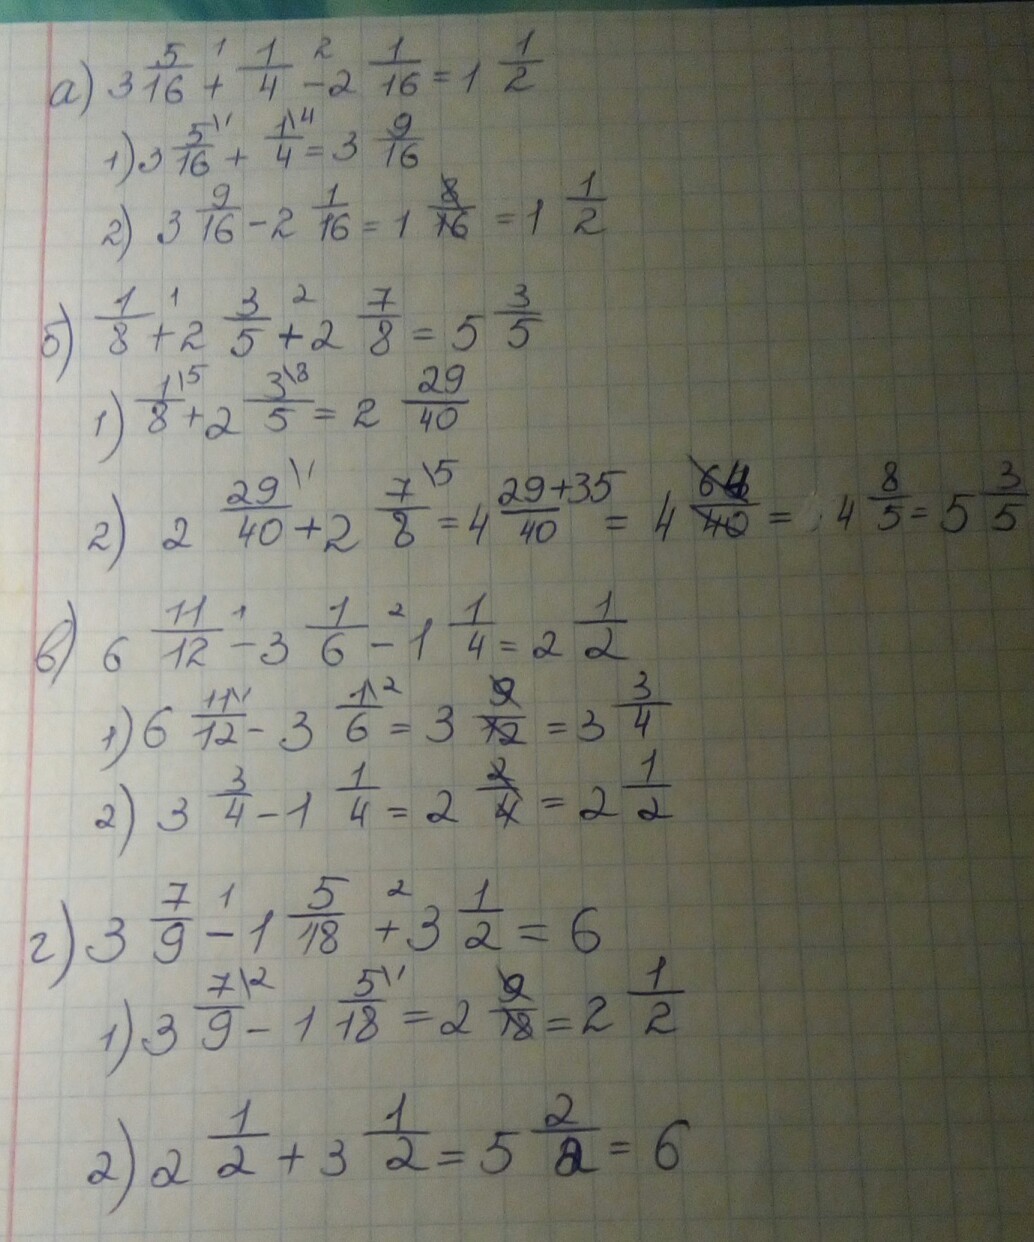 а) 3 5/16 + 1/4 - 2 1/16 = 1 1/2
1) 3 5\1/16 + 1\4/4 = 3 9/16
2) 3 9/16 - 2 1/16 = 1 8/16 = 1 1/2
б) 1/8 + 2 3/5 + 2 7/8 = 5 3/5
1) 1\5/8 + 2 3\8/5 = 2 29/40
2) 2 29\1/40 + 2 7\5/8 = 4 29+35/40 = 4 64/40 = 4 8/5 = 5 3/5
в) 6 11/12 - 3 1/6 - 1 1/4 = 2 1/2
1) 6 11\1/12 - 3 1\2/6 = 3 9/12 = 3 3/4
2) 3 3/4 - 1 1/4 = 2 2/4 = 2 1/2
г) 3 7/9 - 1 5/18 + 3 1/2 = 6
1) 3 7\2/9 - 1 5\1/18 = 2 9/18 = 2 1/2
2) 2 1/2 + 3 1/2 = 5 2/2 = 6